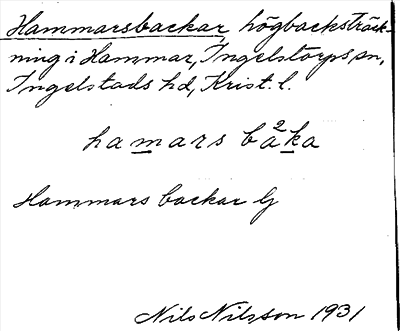 Hammarsbackar, högbacksträck-
ning i Hammar, Ingelstorps sn,
Ingelstads hd, Krist. l.
hamars ba²ka
Hammars backar
Nils Nilsson 1931